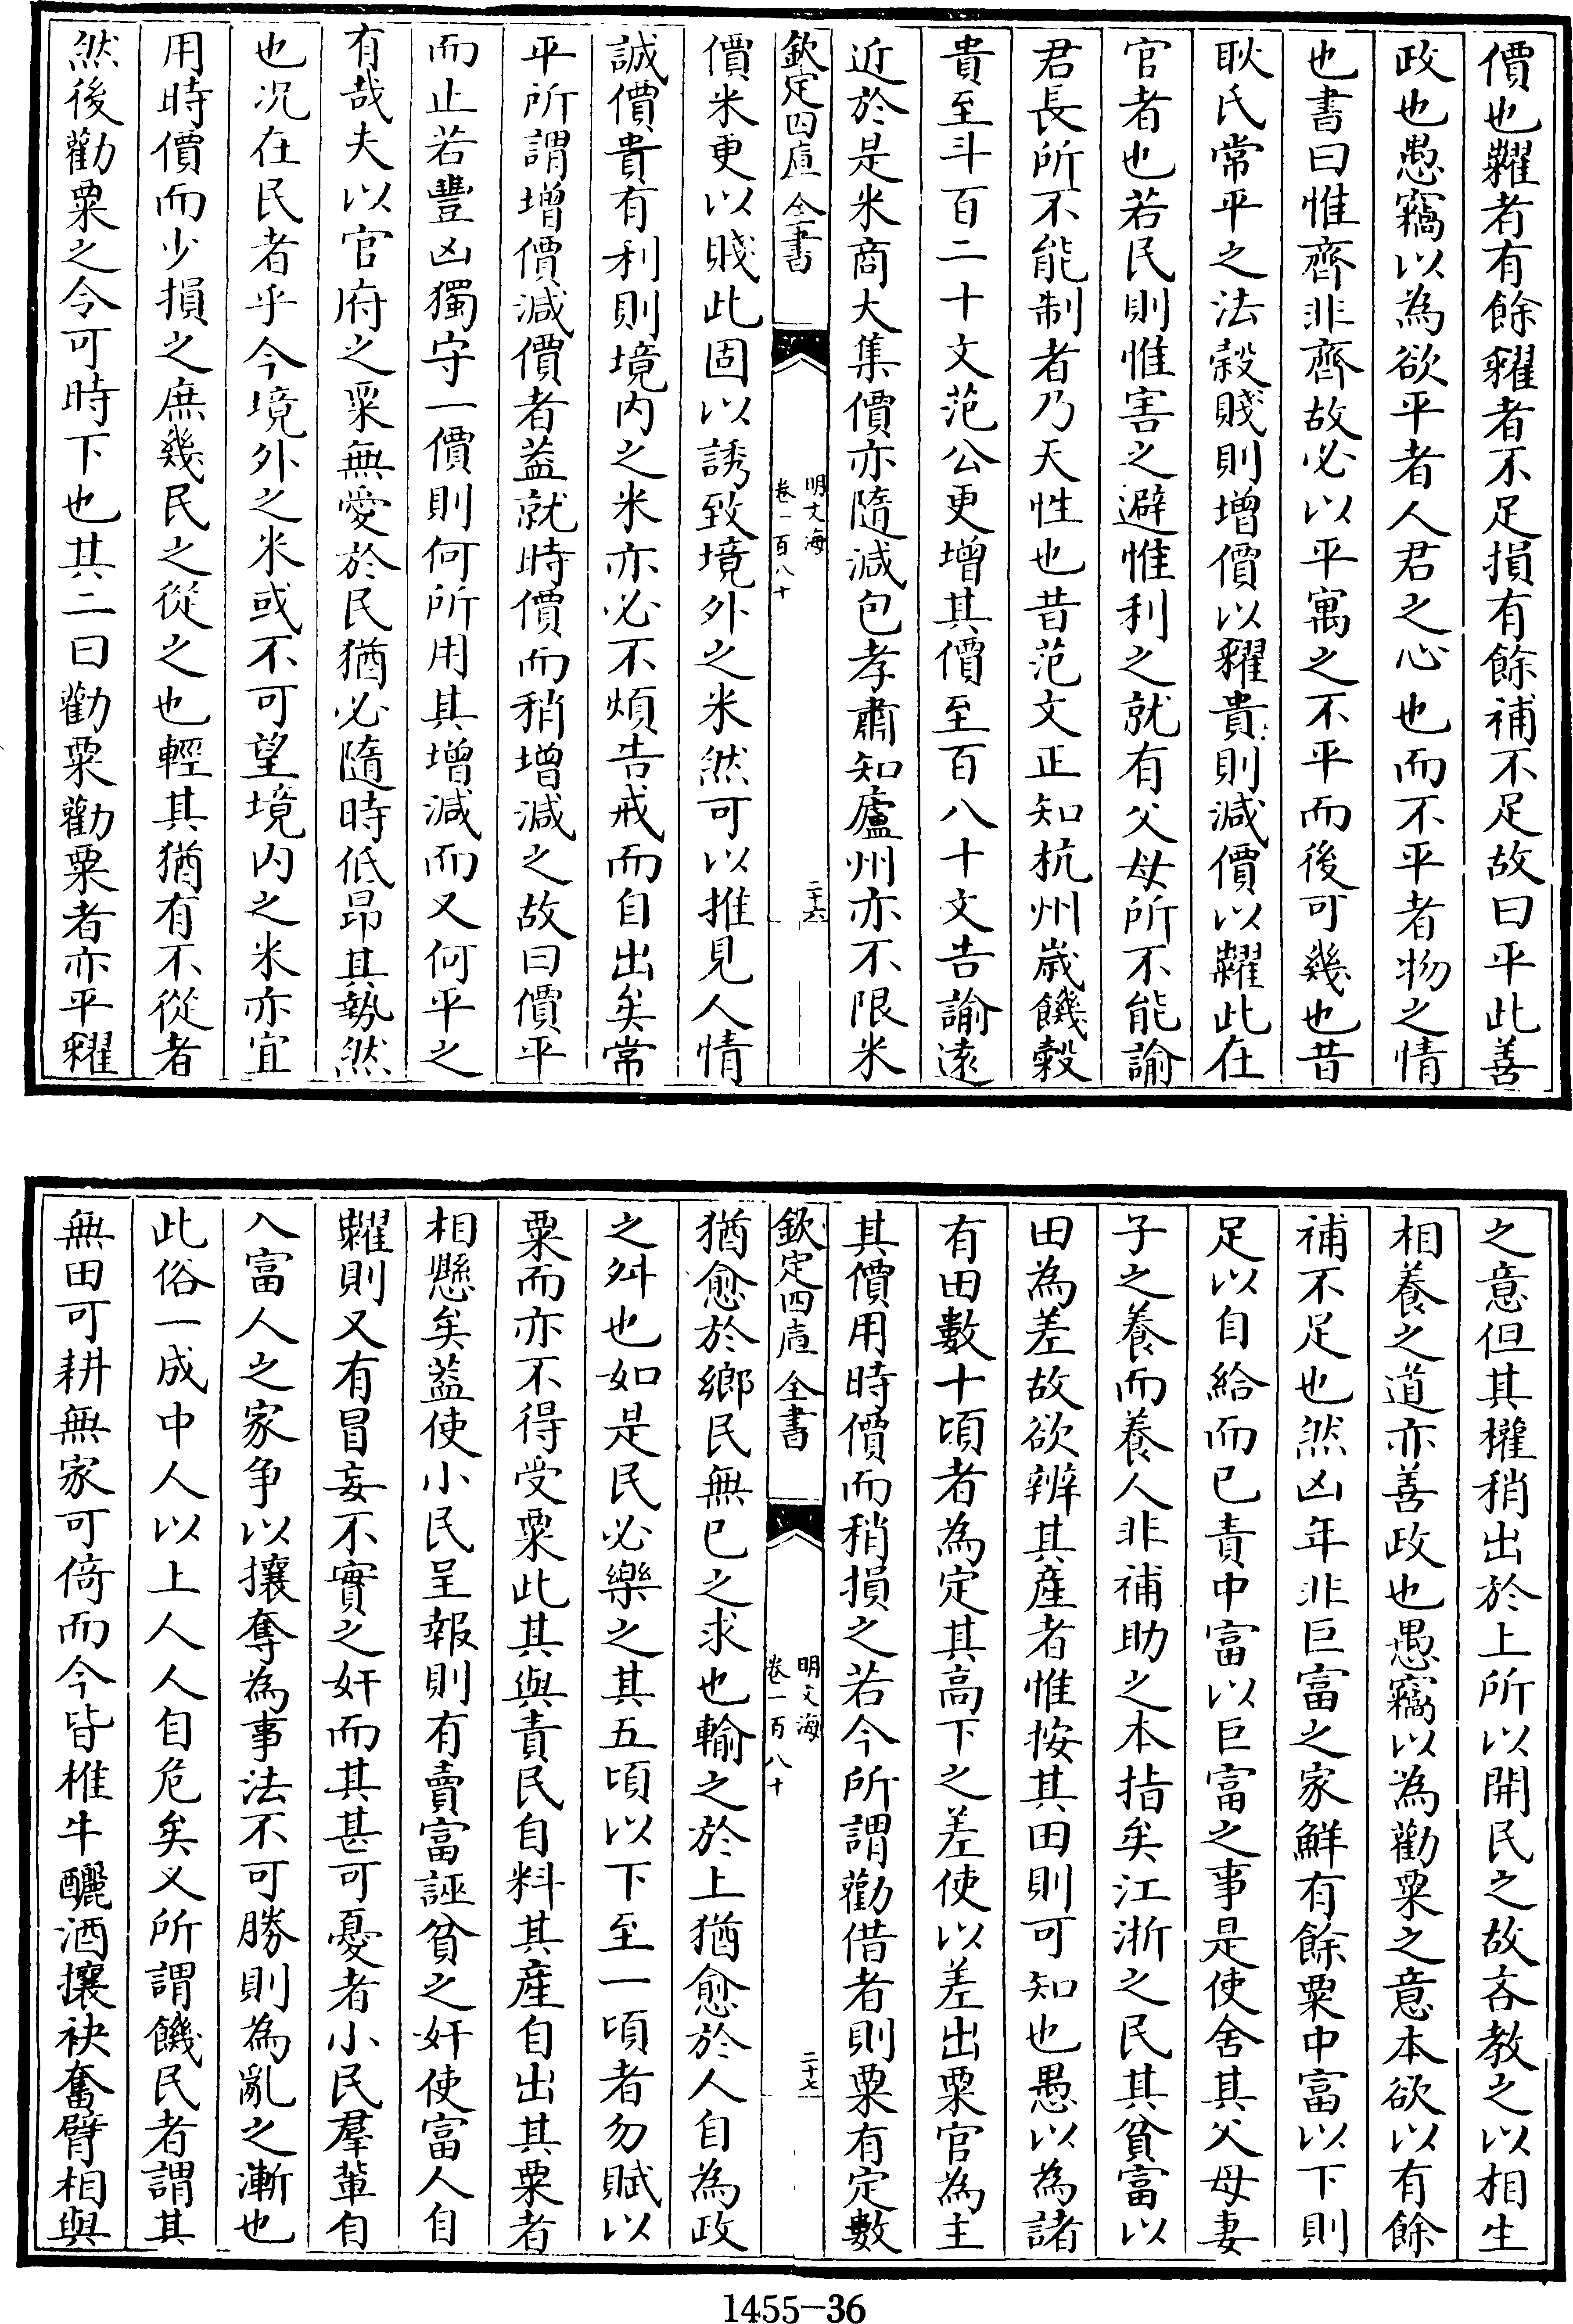 價也糶者有餘糴者不足損有餘補不足故曰平此善
政也愚竊以為欲平者人君之心也而不平者物之情
也書曰惟齊非齊故必以平寓之不平而後可幾也昔
耿氏常平之法榖賤則增價以糴貴則減價以糶此在
官者也若民則惟害之避惟利之就有父母所不能諭
君長所不能制者乃天性也昔范文正知杭州歲饑榖
貴至斗百二十文范公更增其價至百八十文告諭遠
近於是米商大集價亦隨減包孝肅知廬州亦不限米
欽定四庫全書
明文海
卷一百八十
二十六
價米更以賤此固以誘致境外之米然可以推見人情
誠價貴有利則境内之米亦必不煩告戒而自出矣常
平所謂增價減價者蓋就時價而稍增減之故曰價平
而止若豐凶獨守一價則何所用其增減而又何平之
有哉夫以官府之粟無愛於民猶必隨時低昂其勢然
也况在民者乎今境外之米或不可望境内之米亦宜
用時價而少損之庶幾民之從之也輕其猶有不從者
然後勸粟之令可時下也其二曰勸粟勸粟者亦平糴
之意但其權稍出於上所以開民之故吝教之以相生
相養之道亦善政也愚竊以為勸粟之意本欲以有餘
補不足也然凶年非巨富之家鮮有餘粟中富以下則
足以自給而已責中富以巨富之事是使舍其父母妻
子之養而養人非補助之本指矣江浙之民其貧富以
田為差故欲辨其產者惟按其田則可知也愚以為諸
有田數十頃者為定其高下之差使以差出粟官為主
其價用時價而稍損之若今所謂勸借者則粟有定數
欽定四庫全書
明文海
卷一百八十
二十七
猶愈於鄉民無已之求也輸之於上猶愈於人自為政
之舛也如是民必樂之其五頃以下至一頃者勿賦以
粟而亦不得受粟此其與責民自料其產自出其粟者
相懸矣蓋使小民呈報則有賣富誣貧之奸使富人自
糶則又有冒妄不實之奸而其甚可憂者小民羣輩自
入富人之家爭以攘奪為事法不可勝則為亂之漸也
此俗一成中人以上人人自危矣又所謂饑民者謂其
無田可耕無家可倚而今皆椎牛釃酒攘袂奮臂相與
1455—36